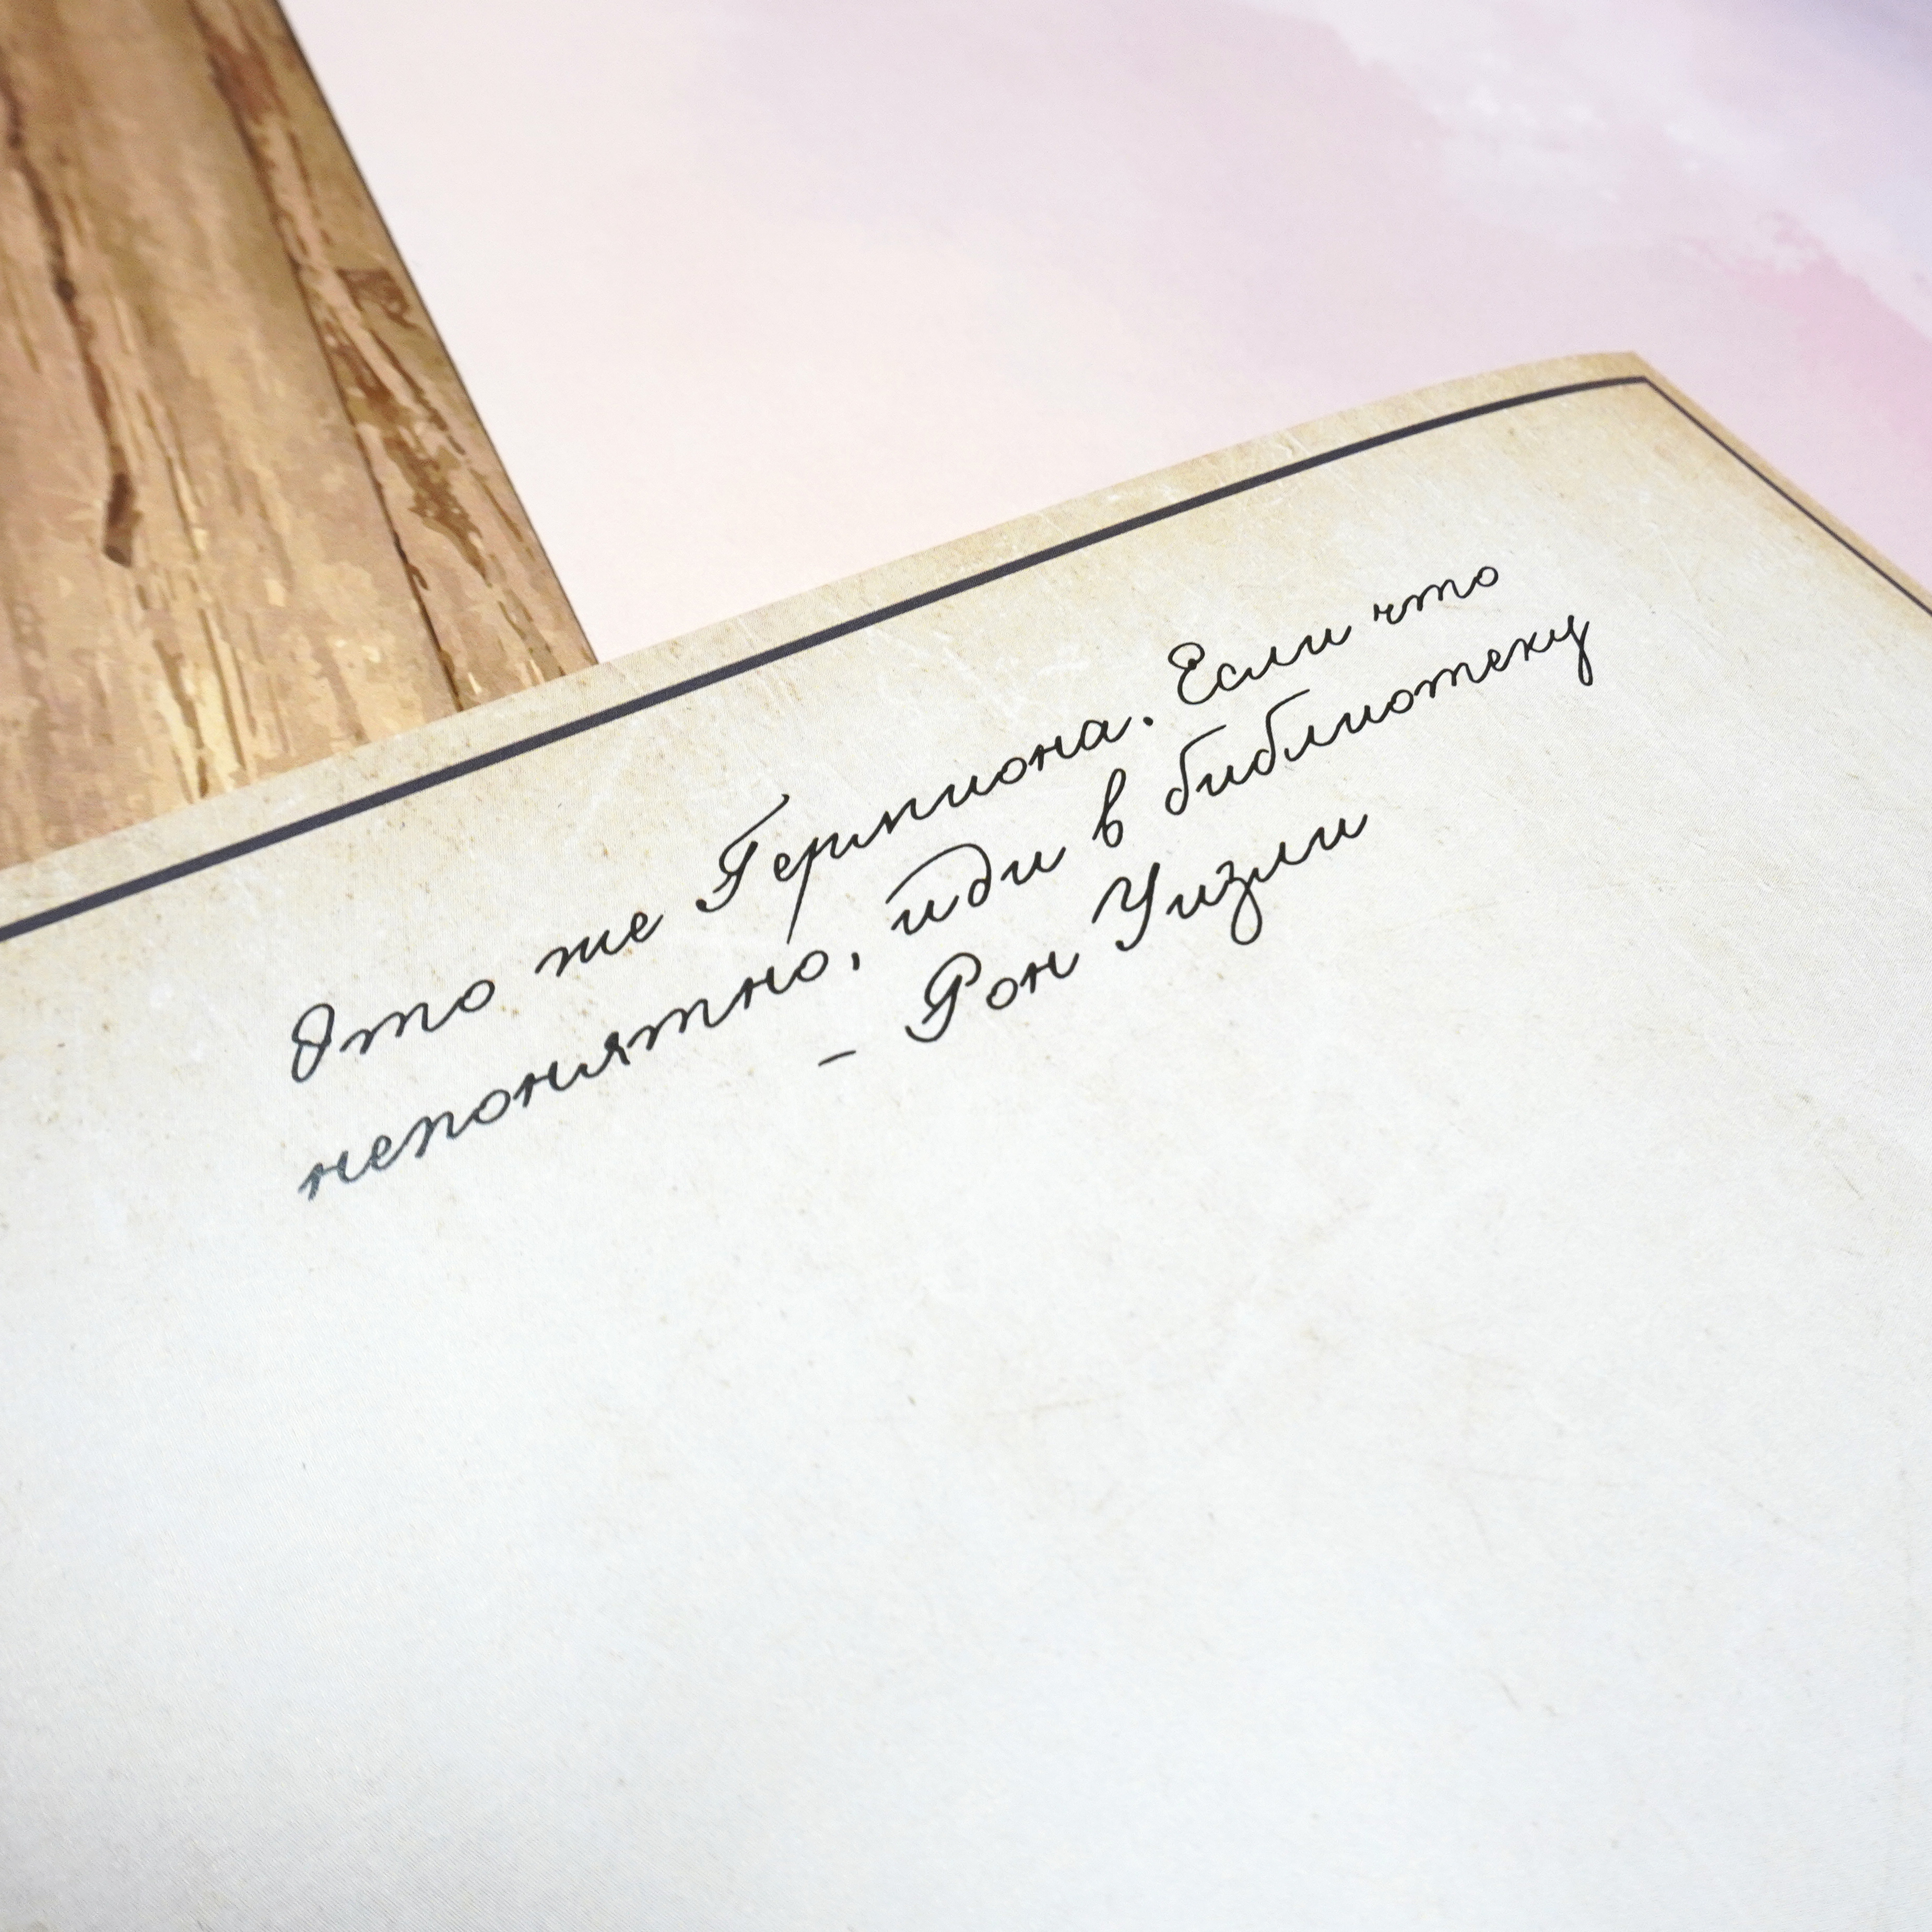 Это же Гермиона. Если что
непонятно, иди в библиотеку
– Рон Уизли